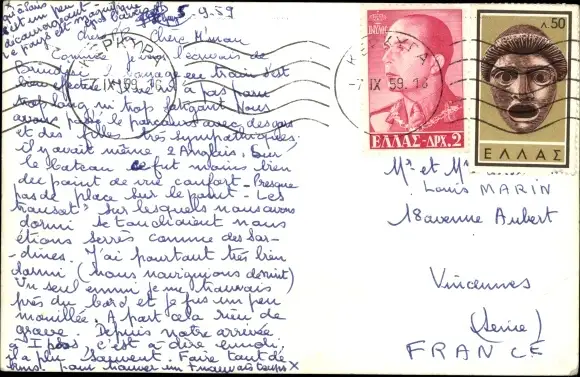 5-9-59
Cher Chère Maman
Comme je vous l'écrivais de
Brindisi le voyage en train s'est
bien effectué
trop long ni trop fatigant Nous
avons passé le parcours avec des gars
et des filles très sympathiques.
il y avait même 2 Anglais. Sur
le bateau ce fut moins bien
du point de vue confort - Presque
pas de place sur le pont - Les
transats sur lesquels nous avons
dormi se touchaient nous
étions serrés comme des sar-
-dines. J'ai pourtant très bien
dormi (nous naviguions de nuit)
Un seul ennui je me trouvais
près du bord et je fus un peu
mouillée. A part cela rien de
grave. Depuis notre arrivée
c'est à dire
il a plu souvent. Faire tant de
kms. pour trouver un mauvais temps
ΚΕΡΚΥΡΑ
-7 IX 59
ΚΕΡΚΥΡΑ
-7 IX 59.18
ΕΛΛΑΣ-ΔΡΧ.2
Λ.50
ΕΛΛΑΣ
Mr et Me
Louis MARIN
18 avenue Aubert
Vincennes
(Seine)
FRANCE